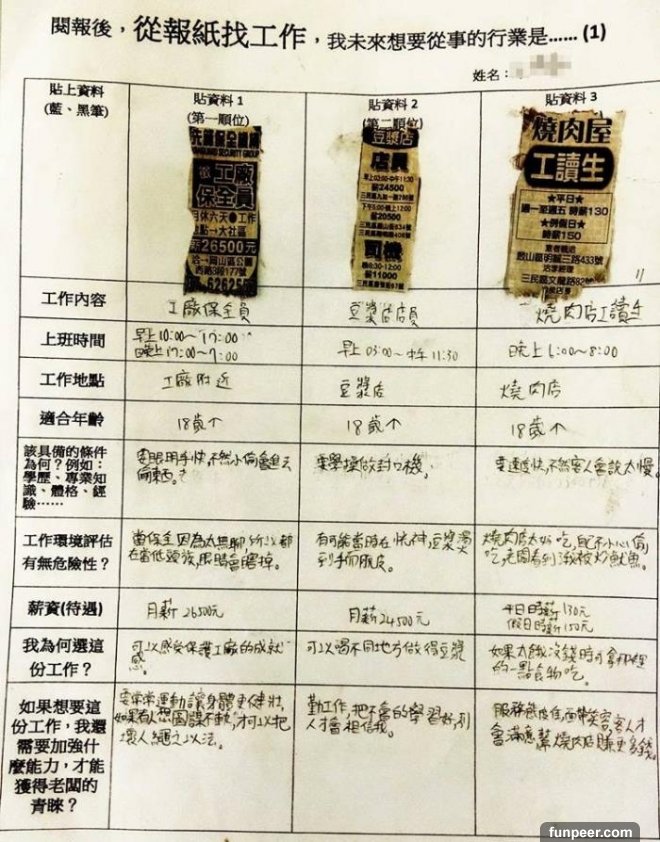 閱報後，從報紙找工作，我未來想要從事的行業是......(1)
姓名：
貼上資料
(藍、黑筆)
貼資料 1
(第一順位)
貼資料 2
(第二順位)
貼資料 3
工廠
保全員
月休六天●工作
點→大社區
薪26500元
豆漿店
店員
早上03:00-中午11:30
薪24500
下午5:00-晚上12:00
薪20500
司機
薪11000
燒肉屋
工讀生
★平日★
週一至週五 時薪130
★例假日★
時薪150
工作內容
工廠保全員
豆漿店店員
燒肉店工讀生
上班時間
早上10:00~17:00
晚上17:00~7:00
早上 03:00~中午11:30
晚上 6:00~8:00
工作地點
工廠附近
豆漿店
燒肉店
適合年齡
18歲个
18歲个
18歲个
該具備的條件
為何？例如：
學歷、專業知
識、體格、經
驗……
要眼明手快,不然小偷會進去
偷東西。
要學操做封口機,
要速度快,不然客人會說太慢。
工作環境評估
有無危險性？
當保全因為太無聊,所以都
在當低頭族,眼睛會瞎掉。
有可能當時在恍神,豆漿燙
到手而脫皮。
燒肉店太好吃,
吃,老闆看到
被炒魷魚。
薪資(待遇)
月薪 26500元
月薪 24500元
平日時薪 130元
假日時薪 150元
我為何選這
份工作？
可以感受保護工廠的成就
感。
可以喝不同地方做得豆漿
如果太餓沒錢時可拿
的一點食物吃。
如果想要這
份工作，我還
需要加強什
麼能力，才能
獲得老闆的
青睞？
要常常運動讓身體更健壯,
如果有人想圖謀不軌,才可以把
壞人繩之以法。
勤工作,把不會的學習好,別
人才會相信我。
服務態度佳,面帶笑容,客人才
會滿意,幫燒肉店賺更多錢。
funpeer.com